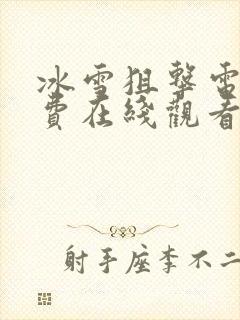 冰雪狙擊電
費在綫觀看
射手座李不二